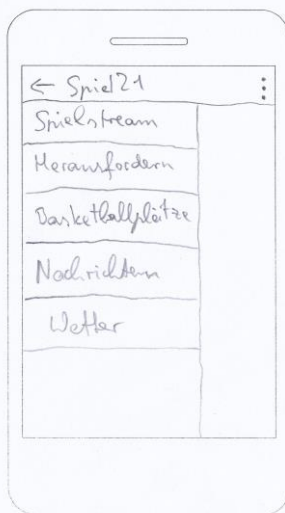 ← Spiel21
Spielstream
Herausfordern
Basketballplätze
Nachrichten
Wetter